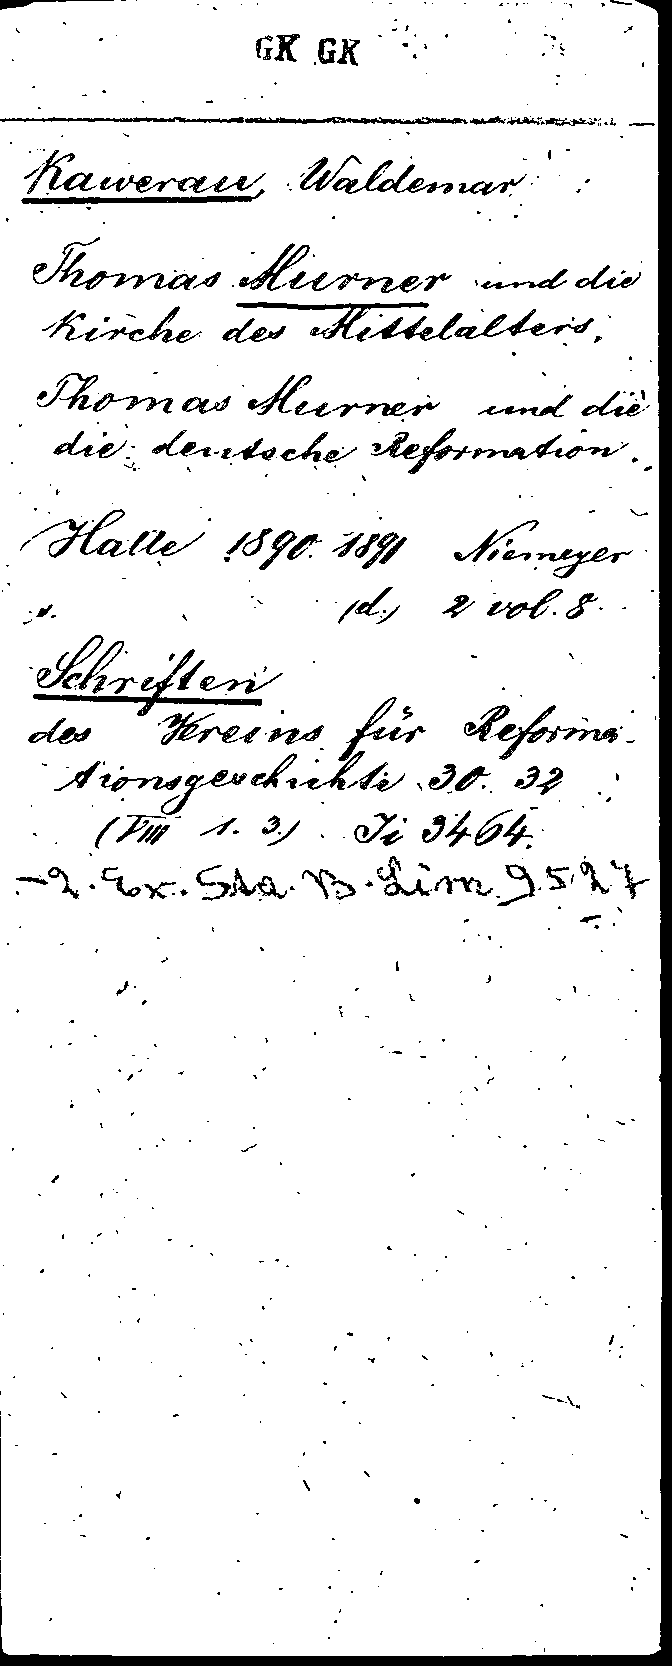 GK GK
Kawerau, Waldemar
Thomas Murner und die
Kirche des Mittelalters.
Thomas Murner und die
die deutsche Reformation.
Halle 1890. 1891 Niemeyer
(d.) 2 vol. 8.
Schriften
des Vereins für Reforma-
tionsgeschichte 30. 32
(VIII 1. 3.) Ji 3464.
- 2. Ex. Sta. B. Lim 9527